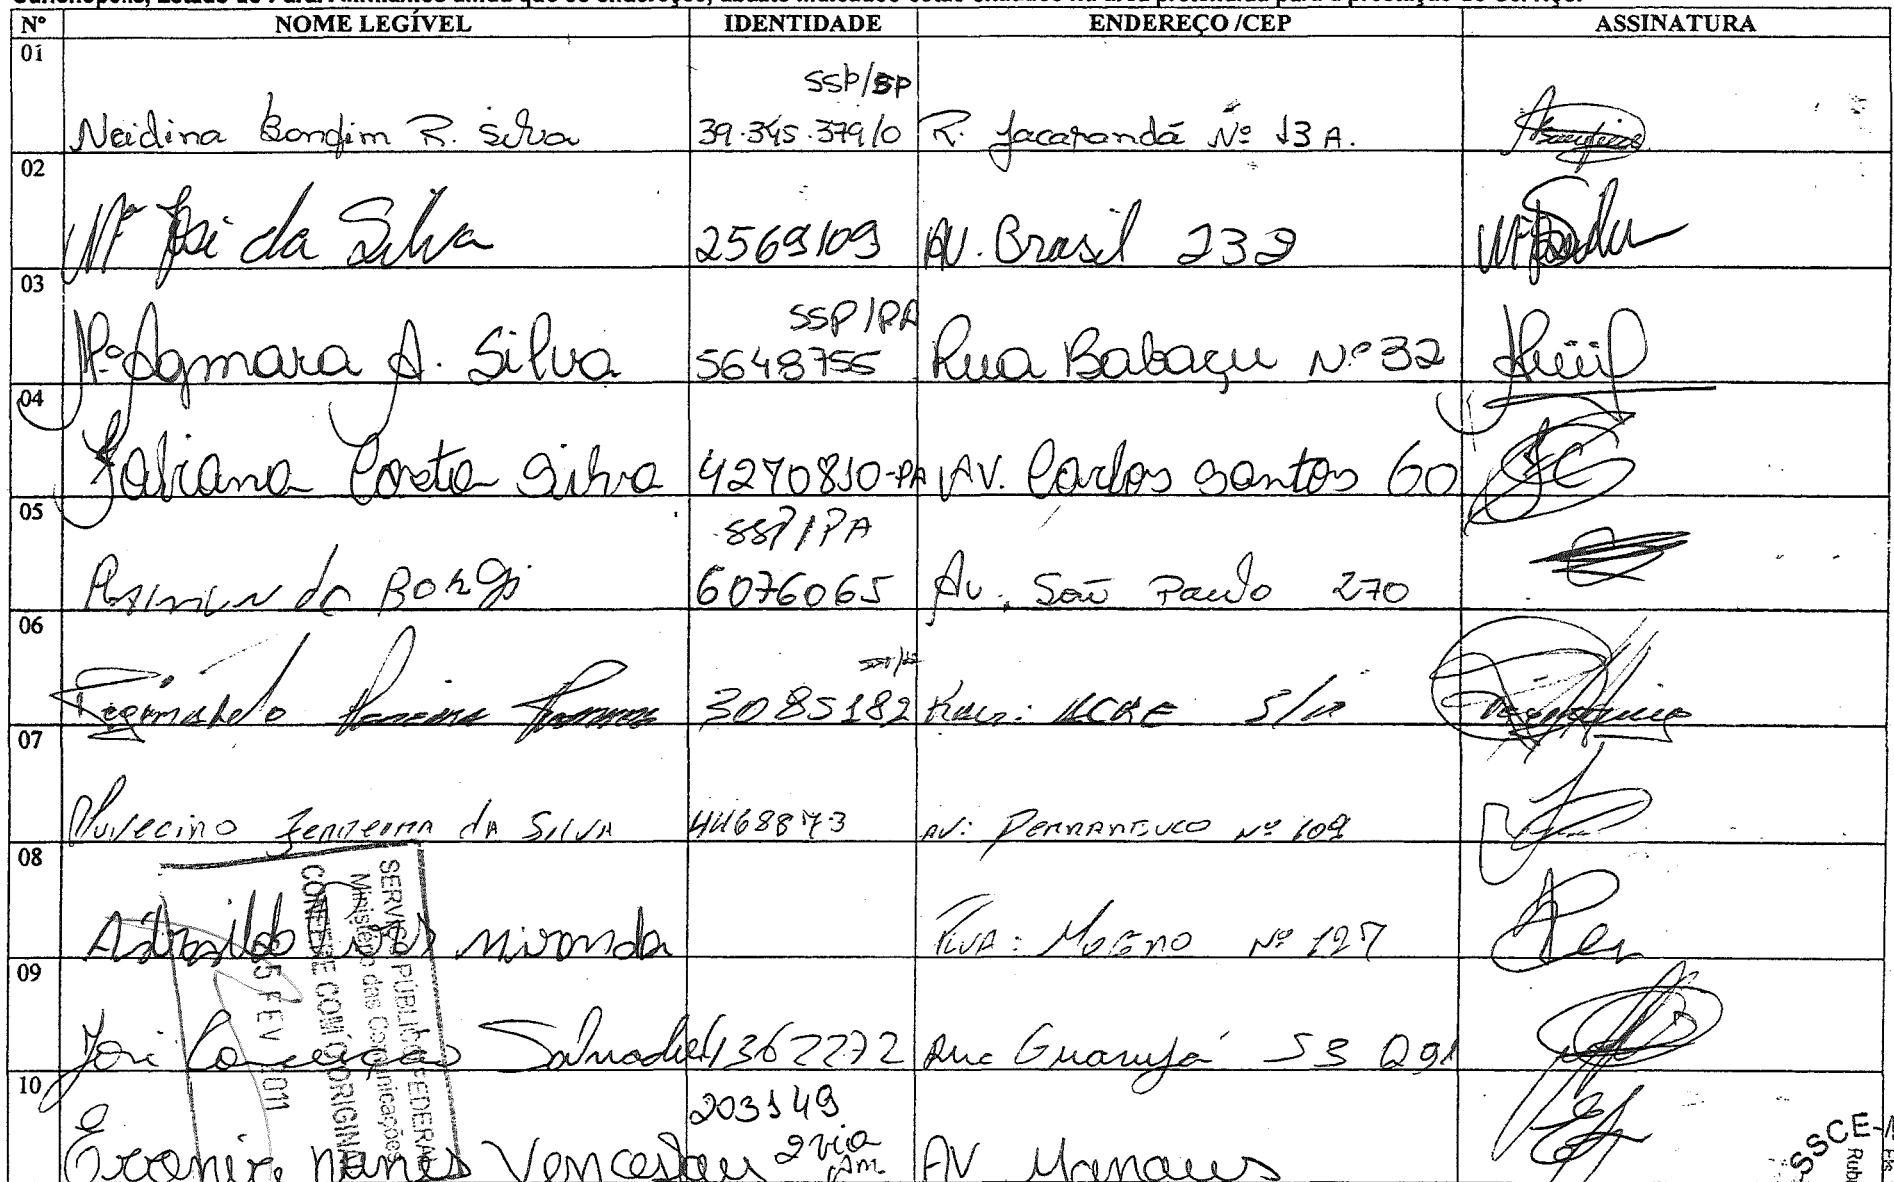 Nº NOME LEGÍVEL IDENTIDADE ENDEREÇO /CEP ASSINATURA
01
SSP/SP
Neidina Bomfim R. Silva 39.345.379/0 R. Jacarandá Nº 13 A.
02
Mª José da Silva 2569109 AV. Brasil 232
03
SSP/PA
Mª Agmara A. Silva 5648755 Rua Babaçu Nº 32
04
Fabiana Costa Silva 4270810-PA AV. Carlos Santos 60
05
SSP/PA
Borgi 6076065 Av. São Paulo 270
06
Reginaldo Pereira 3085182 Rua: ACRE S/N
07
Ferreira da Silva 4468873 AV: Pernambuco Nº 109
08
Miranda Rua: Mogno Nº 127
09
José Conceição Salvador 1362272 Rua Guarujá 53 Q91
10
203149
2 via
Nunes Venceslau AM AV Manaus
SERVIÇO PÚBLICO FEDERAL
Ministério das Comunicações
CONFERE COM O ORIGINAL
5 FEV 2011
SSCE-M
Fls
Rub